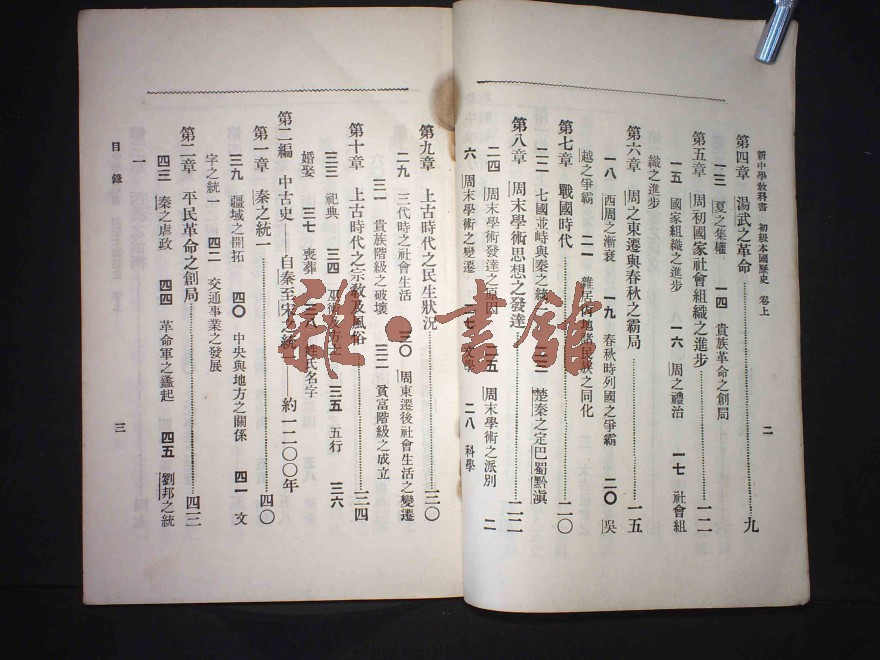 新中學教科書 初級本國歷史 卷上
二
第四章 湯武之革命……九
一三 夏之集權 一四 貴族革命之創局
第五章 周初國家社會組織之進步……一二
一五 國家組織之進步 一六 周之禮治 一七 社會組
織之進步
第六章 周之東遷與春秋之霸局……一五
一八 西周之漸衰 一九 春秋時列國之爭霸 二〇 吳
越之爭霸 二一 雜居內地諸民族之同化
第七章 戰國時代……二〇
二二 七國並峙與秦之 二三 楚秦之定巴蜀黔滇
第八章 周末學術思想之發達……二二
二四 周末學術發達之原因 二五 周末學術之派別 二
六 周末學術之變遷 二七 文學 二八 科學
第九章 上古時代之民生狀況……三〇
二九 三代時之社會生活 三〇 周東遷後社會生活之變遷
三一 貴族階級之破壞 三二 貧富階級之成立
第十章 上古時代之宗教及風俗……三四
三三 祀典 三四 巫術及方士 三五 五行 三六
婚娶 三七 喪葬 三八 姓氏名字
第二編 中古史——自秦至宋之統一——約一二〇〇年
第一章 秦之統一……四〇
三九 疆域之開拓 四〇 中央與地方之關係 四一 文
字之統一 四二 交通事業之發展
第二章 平民革命之創局……四三
四三 秦之虐政 四四 革命軍之蠭起 四五 劉邦之統
一
目錄
三
龍·書館